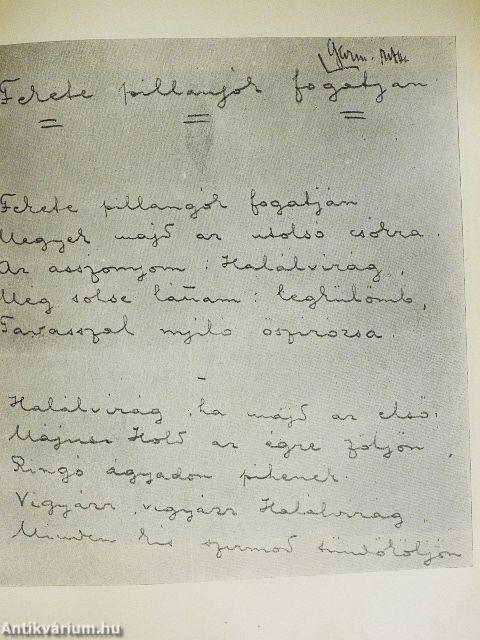 Garm.
Fekete pillangók fogatján
Fekete pillangók fogatján
Megyek majd az utolsó csókra.
Az asszonyom: Halálvirág,
Még sohse láttam: legkülömb,
Tavasszal nyiló őszirózsa.
Halálvirág, ha majd az első:
Májusi Hold az égre jöjjön,
Ringó ágyadon pihenek.
Vigyázz, vigyázz Halálvirág
Minden kis szirmod tündököljön
Antikvárium.hu